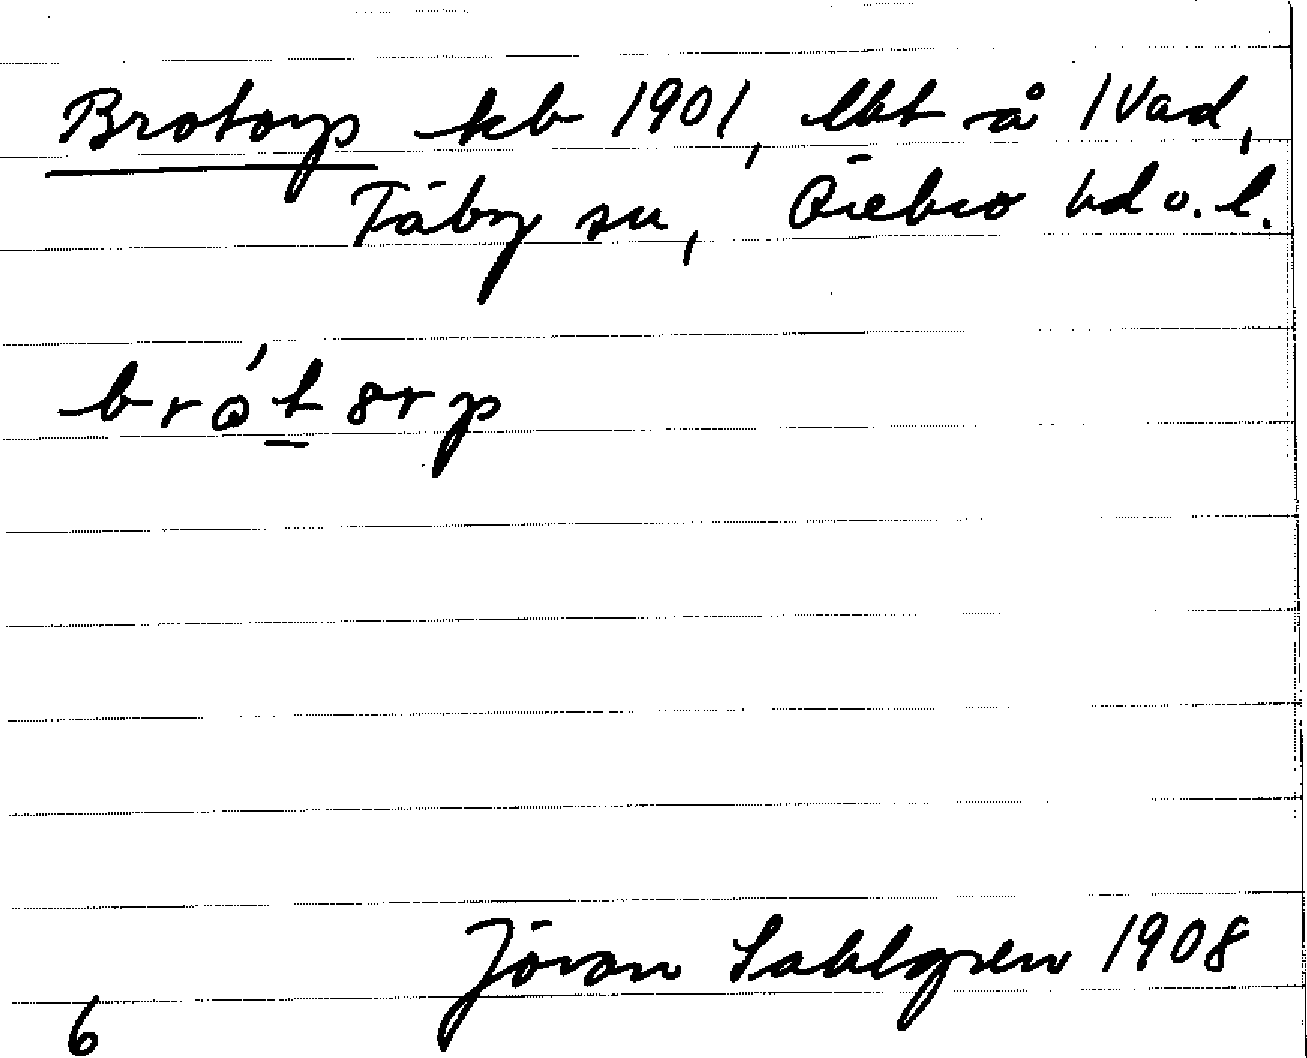 Brotorp kb 1901, lht å 1 Vad,
Täby sn, Örebro hd o. l.
brót8rp
Jöran Sahlgren 1908
6